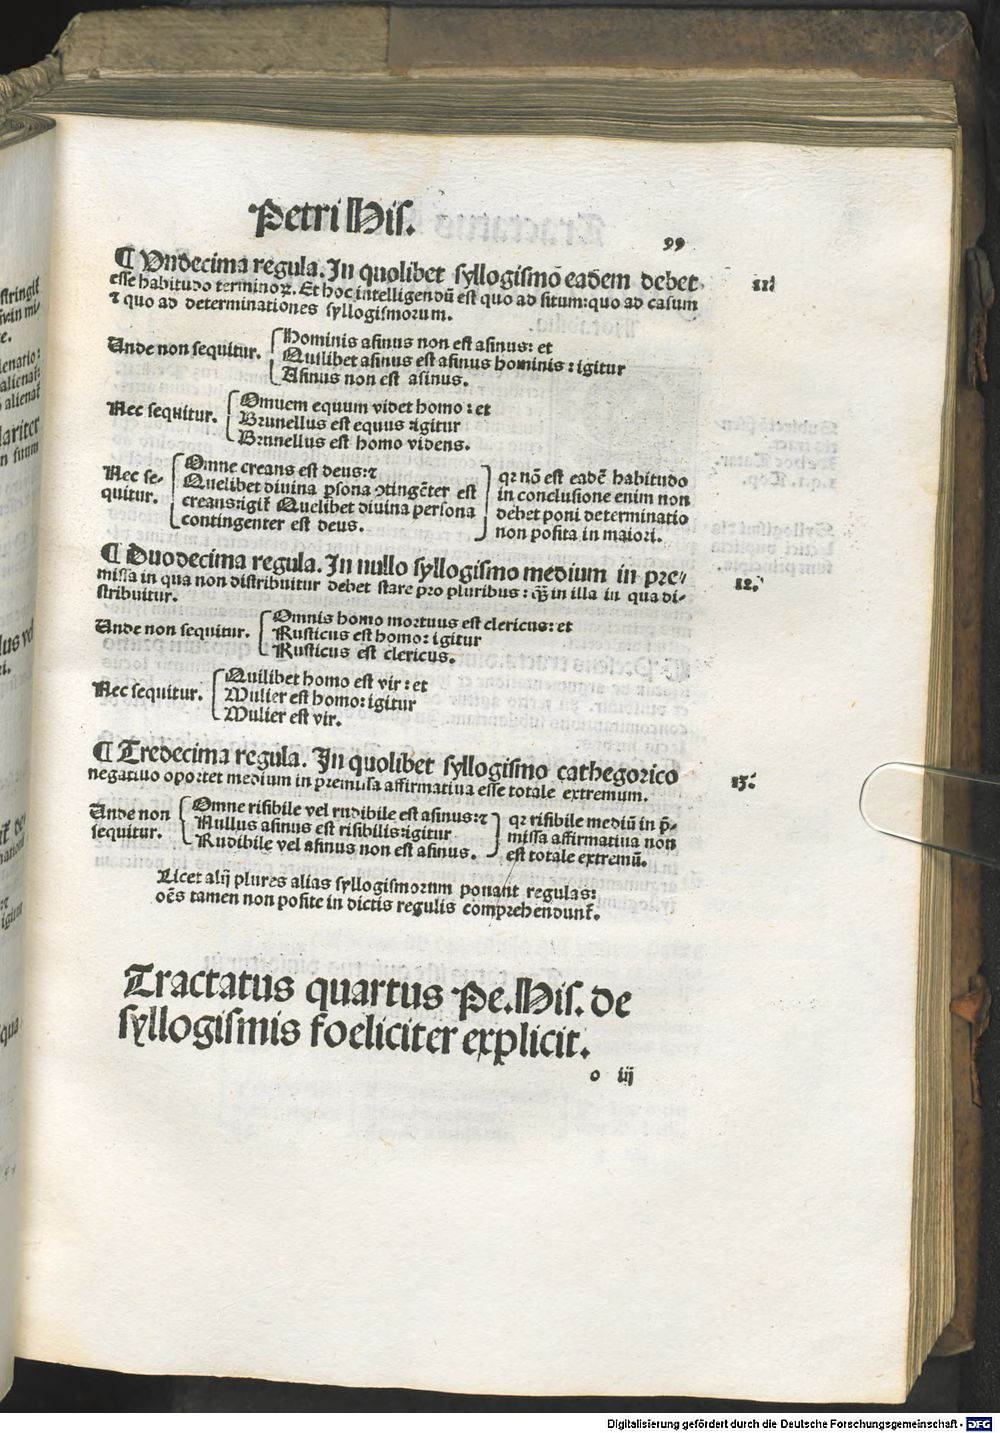 Petri His.
99
¶ Undecima regula. In quolibet syllogismō eadem debet
11.
esse habitudo terminoꝝ. Et hoc intelligendū est quo ad situm: quo ad casum
⁊ quo ad determinationes syllogismorum.
Unde non sequitur.
Hominis asinus non est asinus: et
Quilibet asinus est asinus hominis: igitur
Asinus non est asinus.
Nec sequitur.
Omuem equum videt homo: et
Brunellus est equus: igitur
Brunellus est homo videns.
Nec se-
quitur.
Omne creans est deus: ⁊
Quelibet divina ꝑsona ↄtingēter est
creans: igiť Quelibet divina persona
contingenter est deus.
qꝛ nō est eadē habitudo
in conclusione enim non
debet poni determinatio
non posita in maiori.
¶ Duodecima regula. In nullo syllogismo medium in pre-
12.
missa in qua non distribuitur debet stare pro pluribus: qꝫ in illa in qua di-
stribuitur.
Unde non sequitur.
Omnis homo mortuus est clericus: et
Rusticus est homo: igitur
Rusticus est clericus.
Nec sequitur.
Quilibet homo est vir: et
Mulier est homo: igitur
Mulier est vir.
¶ Tredecima regula. In quolibet syllogismo cathegorico
13.
negativo oportet medium in premissa affirmativa esse totale extremum.
Unde non
sequitur.
Omne risibile vel rudibile est asinus: ⁊
Nullus asinus est risibilis: igitur
Rudibile vel asinus non est asinus.
qꝛ risibile mediū in p̄-
missa affirmativa non
est totale extremū.
Licet alij plures alias syllogismorum ponant regulas:
oēs tamen non posite in dictis regulis comprehendunť.
Tractatus quartus Pe. His. de
syllogismis foeliciter explicit.
o iij
Digitalisierung gefördert durch die Deutsche Forschungsgemeinschaft - DFG